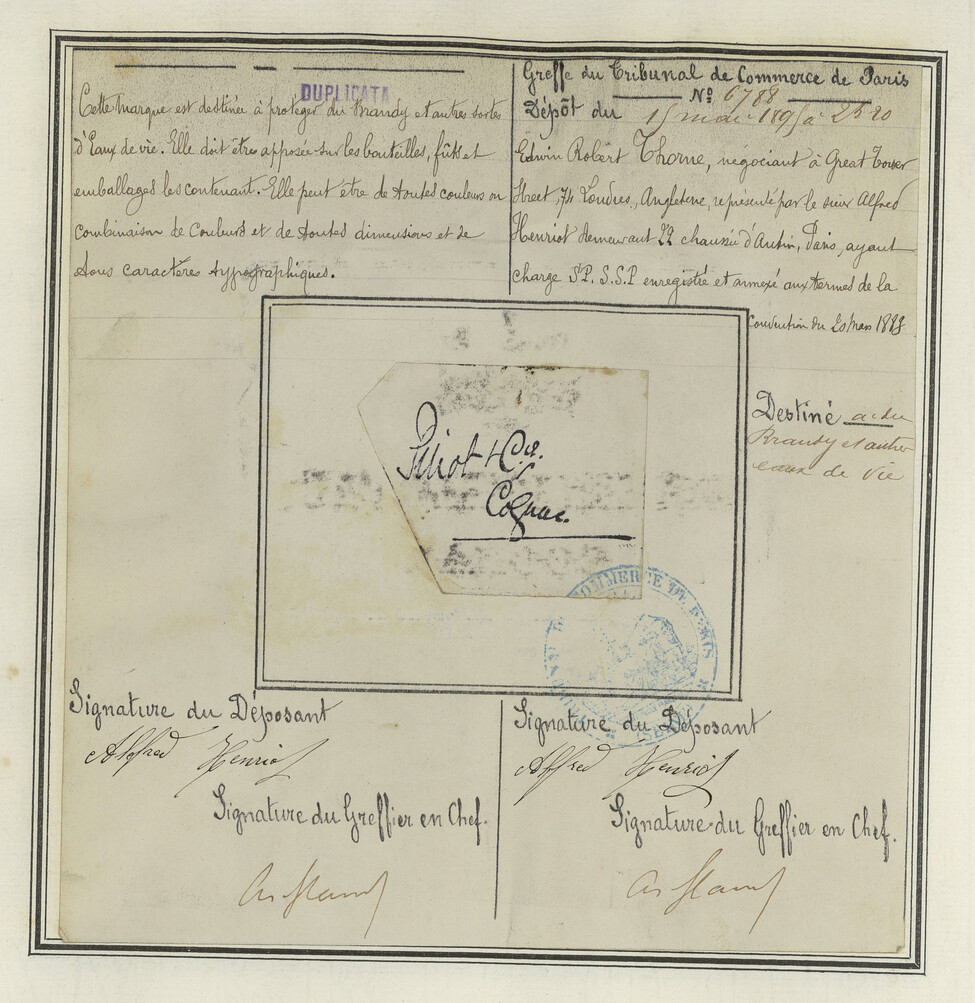 DUPLICATA
Cette marque est destinée à protéger du Brandy et autres sortes
d'Eaux de vie. Elle doit être apposée sur les bouteilles, fûts et
emballages les contenant. Elle peut être de toutes couleurs ou
combinaison de couleurs et de toutes dimensions et de
tous caractères typographiques.
Greffe du Tribunal de Commerce de Paris
Nº 6788
Dépôt du 15 mai 1895 à 2h20
Edwin Robert Thorne, négociant à Great Tower
Street, 74 Londres, Angleterre, représenté par le sieur Alfred
Henriot demeurant 22 chaussée d'Antin, Paris, ayant
charge S.P. S.S.P enregistré et annexé aux termes de la
Convention du 20 Mars 1883
Destiné à du
Brandy et autres
eaux de vie
& Cie.
Cognac.
COMMERCE DE
Signature du Déposant
Alfred Henriot
Signature du Greffier en Chef.
Signature du Déposant
Alfred Henriot
Signature du Greffier en Chef.